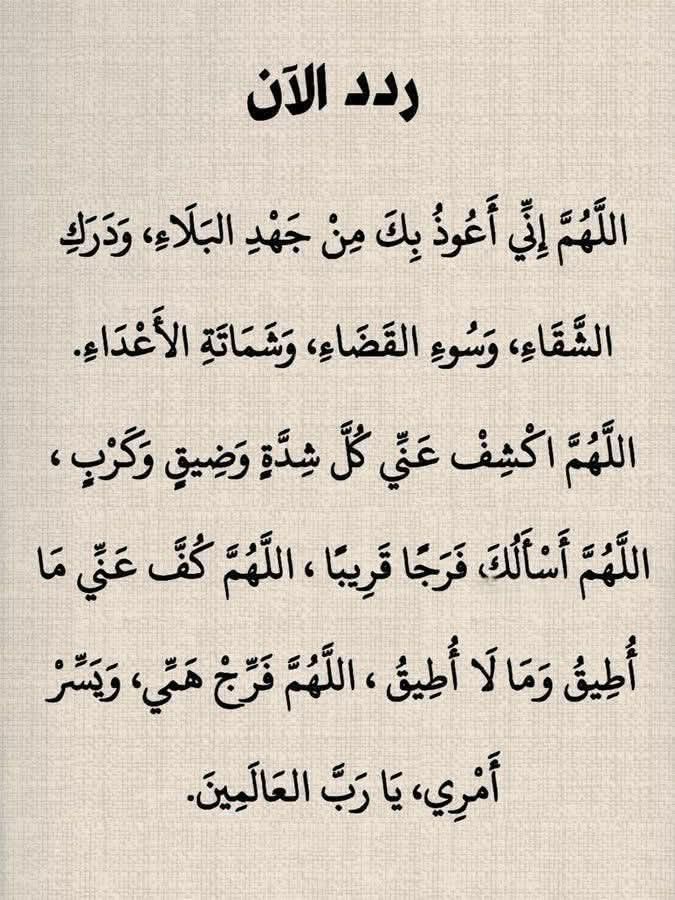 ردد الآن
اللَّهُمَّ إِنِّي أَعُوذُ بِكَ مِنْ جَهْدِ البَلَاءِ، وَدَرَكِ
الشَّقَاءِ، وَسُوءِ القَضَاءِ، وَشَمَاتَةِ الأَعْدَاءِ.
اللَّهُمَّ اكْشِفْ عَنِّي كُلَّ شِدَّةٍ وَضِيقٍ وَكَرْبٍ ،
اللَّهُمَّ أَسْأَلُكَ فَرَجًا قَرِيبًا ، اللَّهُمَّ كُفَّ عَنِّي مَا
أُطِيقُ وَمَا لَا أُطِيقُ ، اللَّهُمَّ فَرِّجْ هَمِّي، وَيَسِّرْ
أَمْرِي، يَا رَبَّ العَالَمِينَ.